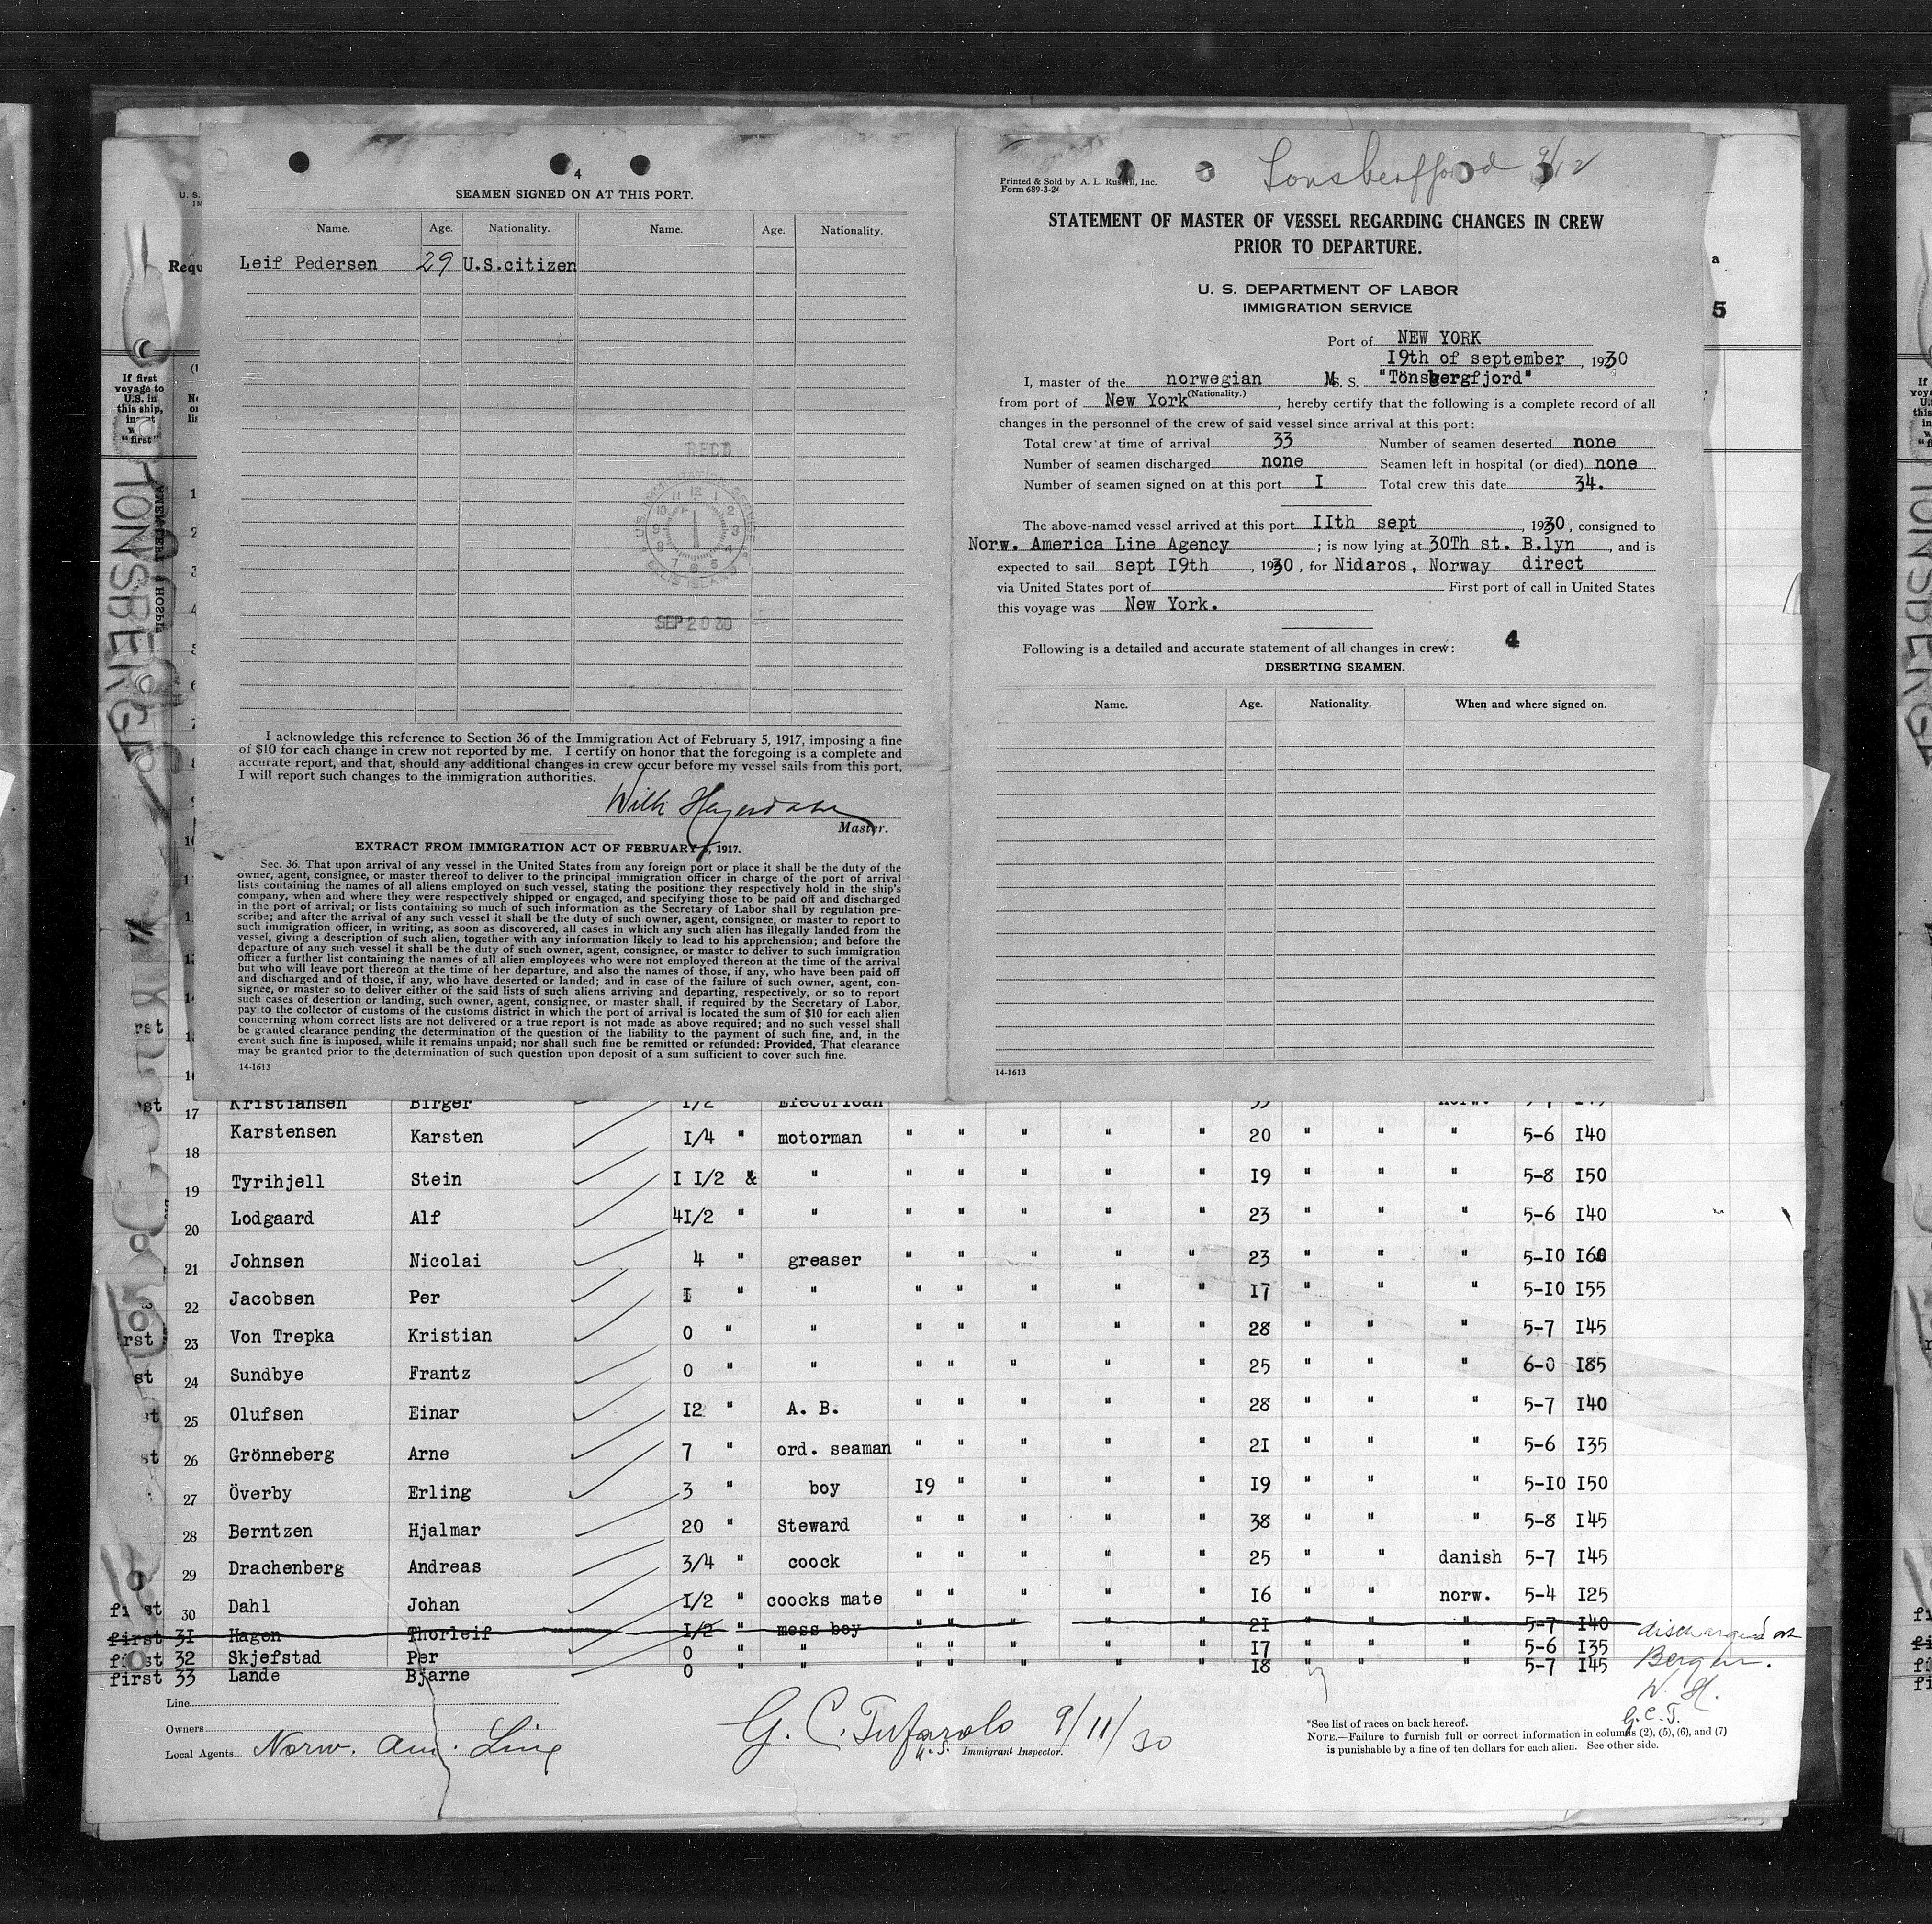 4
SEAMEN SIGNED ON AT THIS PORT.
Name. Age. Nationality. Name. Age. Nationality.
Leif Pedersen 29 U.S.citizen
RECD
ELLIS ISLAND
SEP 20 30
I acknowledge this reference to Section 36 of the Immigration Act of February 5, 1917, imposing a fine
of $10 for each change in crew not reported by me. I certify on honor that the foregoing is a complete and
accurate report, and that, should any additional changes in crew occur before my vessel sails from this port,
I will report such changes to the immigration authorities.
Master.
EXTRACT FROM IMMIGRATION ACT OF FEBRUARY 5, 1917.
Sec. 36. That upon arrival of any vessel in the United States from any foreign port or place it shall be the duty of the
owner, agent, consignee, or master thereof to deliver to the principal immigration officer in charge of the port of arrival
lists containing the names of all aliens employed on such vessel, stating the positions they respectively hold in the ship's
company, when and where they were respectively shipped or engaged, and specifying those to be paid off and discharged
in the port of arrival; or lists containing so much of such information as the Secretary of Labor shall by regulation pre-
scribe; and after the arrival of any such vessel it shall be the duty of such owner, agent, consignee, or master to report to
such immigration officer, in writing, as soon as discovered, all cases in which any such alien has illegally landed from the
vessel, giving a description of such alien, together with any information likely to lead to his apprehension; and before the
departure of any such vessel it shall be the duty of such owner, agent, consignee, or master to deliver to such immigration
officer a further list containing the names of all alien employees who were not employed thereon at the time of the arrival
but who will leave port thereon at the time of her departure, and also the names of those, if any, who have been paid off
and discharged and of those, if any, who have deserted or landed; and in case of the failure of such owner, agent, con-
signee, or master so to deliver either of the said lists of such aliens arriving and departing, respectively, or so to report
such cases of desertion or landing, such owner, agent, consignee, or master shall, if required by the Secretary of Labor,
pay to the collector of customs of the customs district in which the port of arrival is located the sum of $10 for each alien
concerning whom correct lists are not delivered or a true report is not made as above required; and no such vessel shall
be granted clearance pending the determination of the question of the liability to the payment of such fine, and, in the
event such fine is imposed, while it remains unpaid; nor shall such fine be remitted or refunded: Provided, That clearance
may be granted prior to the determination of such question upon deposit of a sum sufficient to cover such fine.
14-1613
Printed & Sold by A. L. Russell, Inc.
Form 689-3-24
STATEMENT OF MASTER OF VESSEL REGARDING CHANGES IN CREW
PRIOR TO DEPARTURE.
U. S. DEPARTMENT OF LABOR
IMMIGRATION SERVICE
Port of NEW YORK
19th of september, 1930
I, master of the norwegian M.S. S. "Tönsbergfjord"
(Nationality.)
from port of New York, hereby certify that the following is a complete record of all
changes in the personnel of the crew of said vessel since arrival at this port:
Total crew at time of arrival 33 Number of seamen deserted none
Number of seamen discharged none Seamen left in hospital (or died) none
Number of seamen signed on at this port I Total crew this date 34.
The above-named vessel arrived at this port IIth sept, 1930, consigned to
Norw. America Line Agency; is now lying at 30Th st. B.lyn, and is
expected to sail sept I9th, 1930, for Nidaros, Norway direct
via United States port of First port of call in United States
this voyage was New York.
Following is a detailed and accurate statement of all changes in crew: 4
DESERTING SEAMEN.
Name. Age. Nationality. When and where signed on.
14-1613
If first
voyage to
U.S. in
this ship,
"first"
TONSBERG
5
17 Kristiansen Birger I/2 Electrican 35 norw.
18 Karstensen Karsten I/4 " motorman " " " " " 20 " " " 5-6 I40
19 Tyrihjell Stein I I/2 & " " " " " " 19 " " " 5-8 I50
20 Lodgaard Alf 4I/2 " " " " " " " 23 " " " 5-6 I40
21 Johnsen Nicolai 4 " greaser " " " " " 23 " " " 5-I0 I60
22 Jacobsen Per I " " " " " " " I7 " " " 5-I0 I55
23 Von Trepka Kristian 0 " " " " " " " 28 " " " 5-7 I45
24 Sundbye Frantz 0 " " " " " " " 25 " " " 6-0 I85
25 Olufsen Einar I2 " A. B. " " " " " 28 " " " 5-7 I40
26 Grönneberg Arne 7 " ord. seaman " " " " " 2I " " " 5-6 I35
27 Överby Erling 3 " boy I9 " " " " I9 " " " 5-I0 I50
28 Berntzen Hjalmar 20 " Steward " " " " " 38 " " " 5-8 I45
29 Drachenberg Andreas 3/4 " coock " " " " " 25 " " danish 5-7 I45
first 30 Dahl Johan I/2 " coocks mate " " " " " I6 " " norw. 5-4 I25
first 31 Hagen Thorleif I/2 " mess boy " " " " " 2I " " " 5-7 I40 discharged at
first 32 Skjefstad Per 0 " " " " " " " I7 " " " 5-6 I35 Bergen.
first 33 Lande Bjarne 0 " " " " " " " I8 " " " 5-7 I45
W. H.
G. C. T.
Line
Owners
Local Agents. Norw. Am. Line
G. C. Tufarolo 9/11/30
U. S. Immigrant Inspector.
*See list of races on back hereof.
NOTE.—Failure to furnish full or correct information in columns (2), (5), (6), and (7)
is punishable by a fine of ten dollars for each alien. See other side.